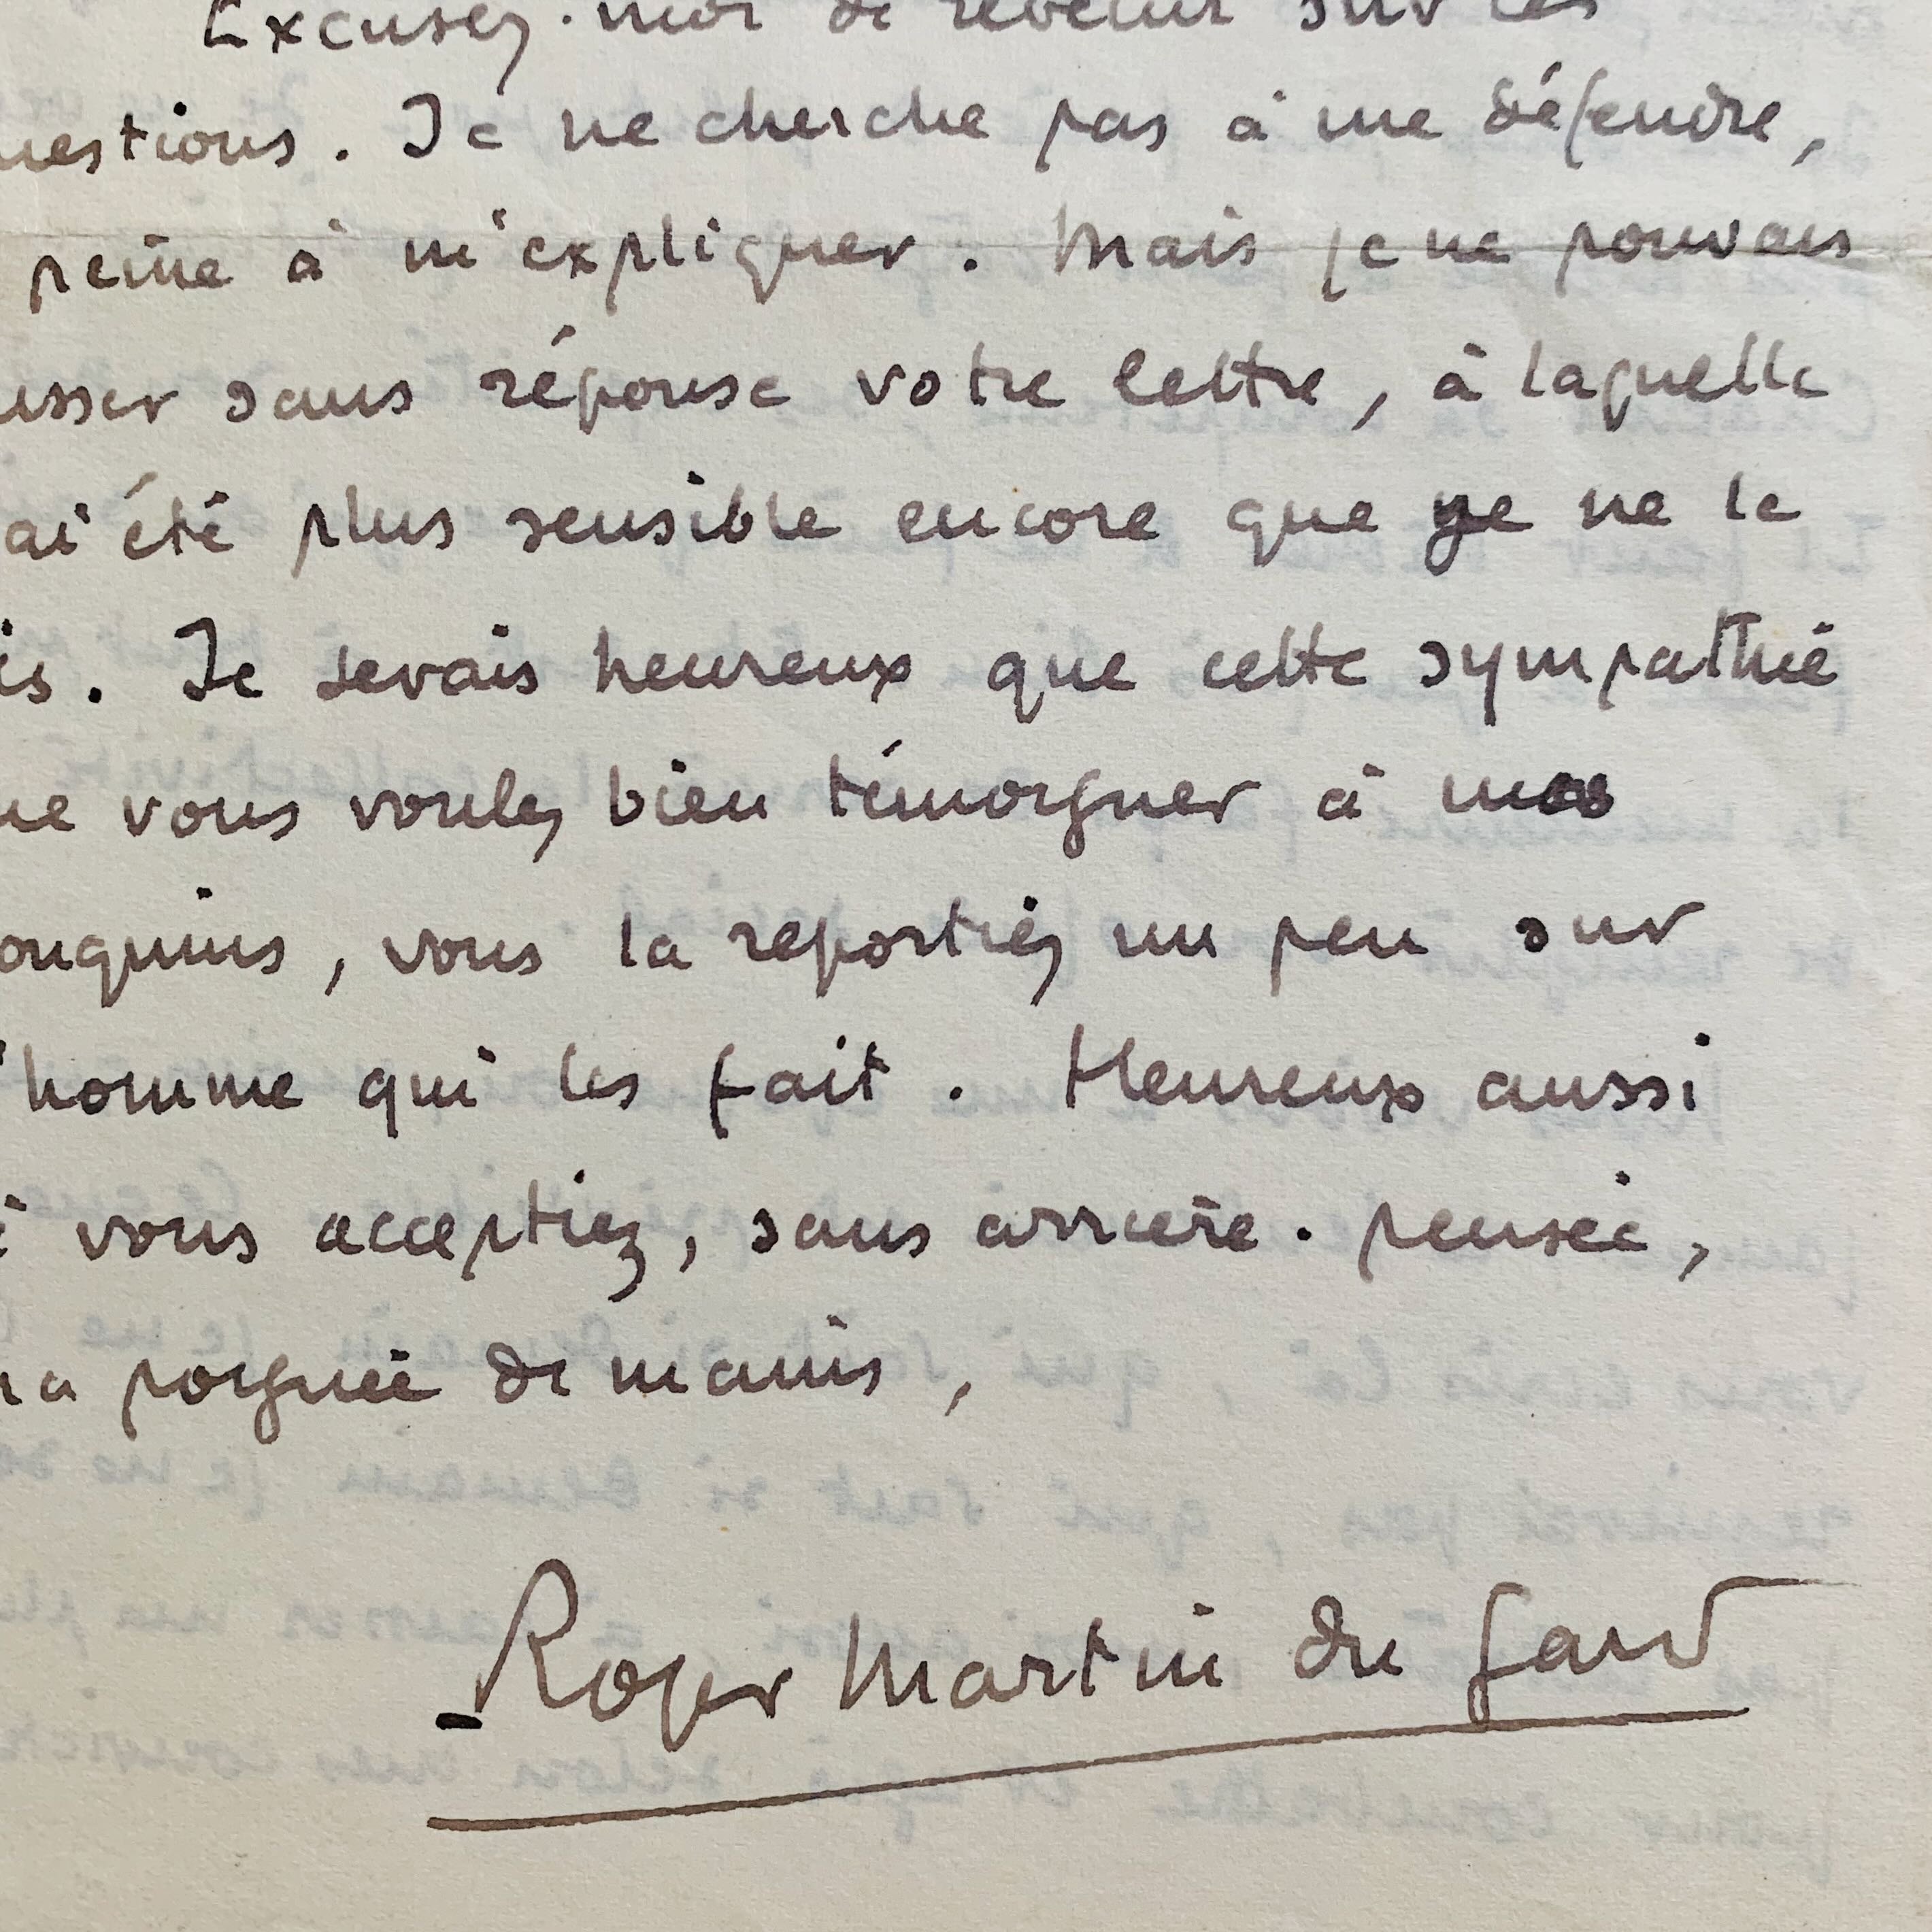 Excusez-moi de revenir sur ces
uestions. Je ne cherche pas à me défendre,
peine à m'expliquer. Mais je ne pouvais
isser sans réponse votre lettre, à laquelle
ai été plus sensible encore que je ne le
is. Je serais heureux que cette sympathie
ue vous voulez bien témoigner à mes
ouquins, vous la reportiez un peu sur
'homme qui les fait. Heureux aussi
e vous acceptiez, sans arrière-pensée,
ma poignée de mains,
Roger Martin du Gard